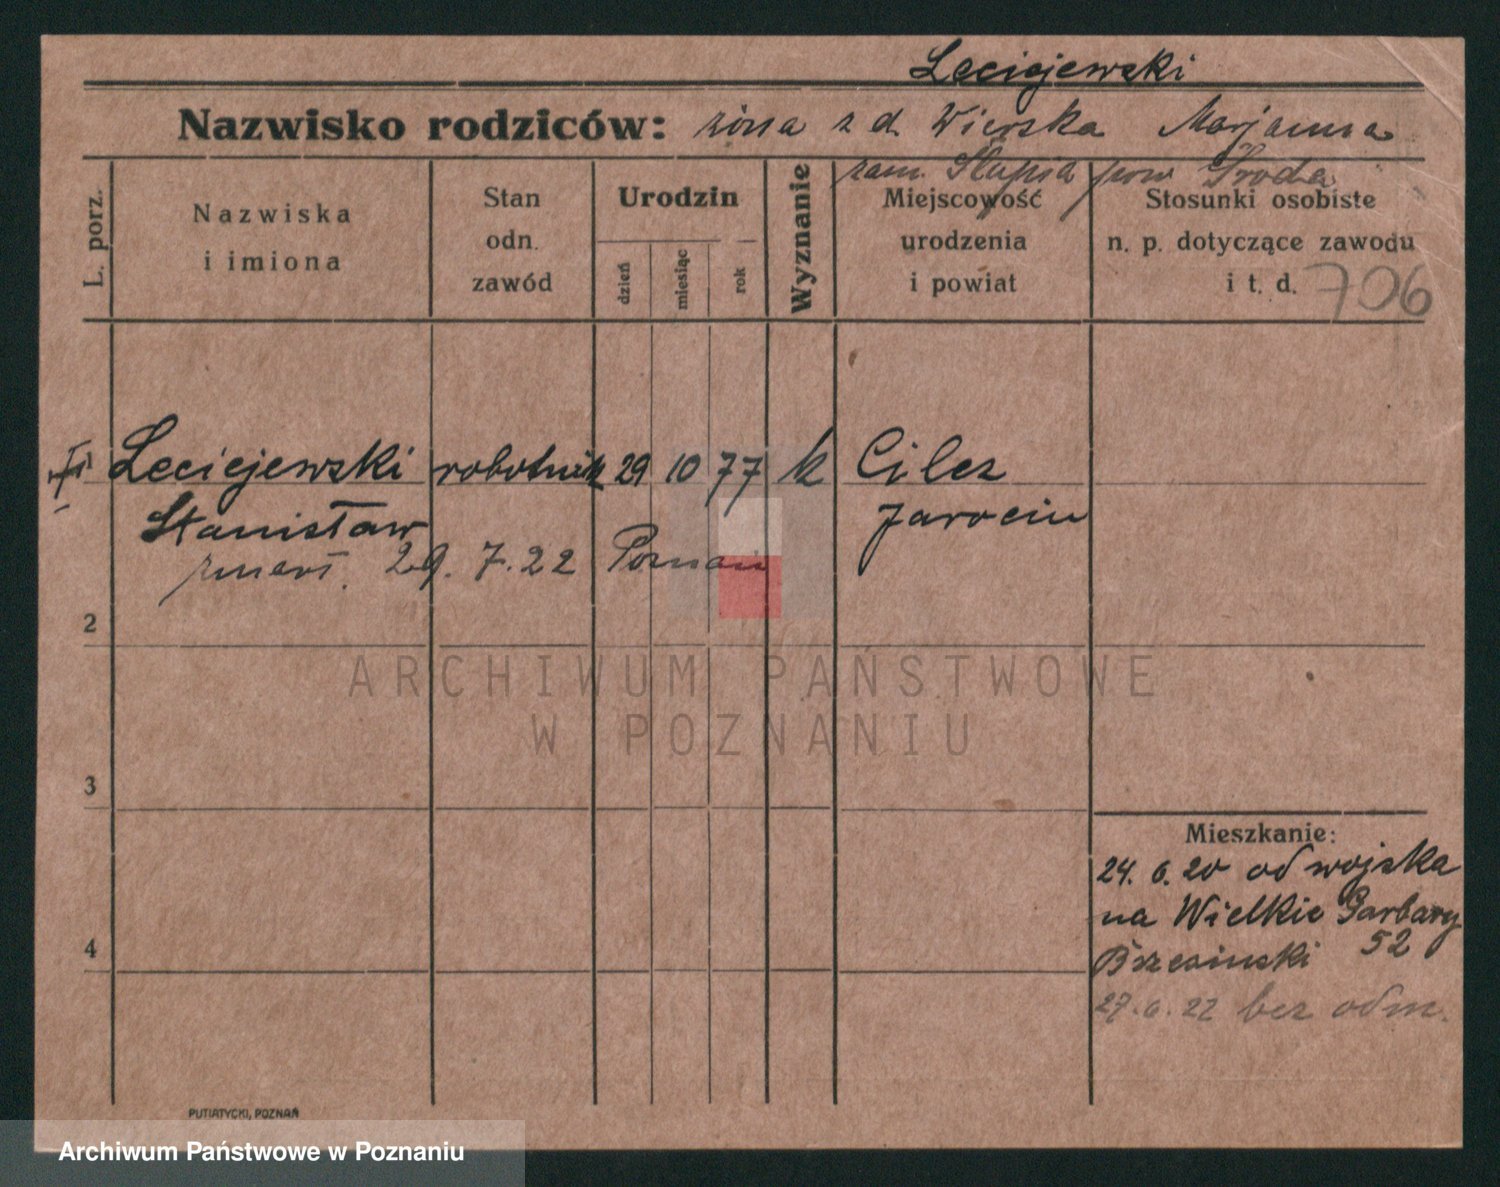 Leciejewski
Nazwisko rodziców: żona z d. Wierska Marjanna
zam. Słupia pow Środa
L. porz.
Nazwiska
i imiona
Stan
odn.
zawód
Urodzin
dzień
miesiąc
rok
Wyznanie
Miejscowość
urodzenia
i powiat
Stosunki osobiste
n. p. dotyczące zawodu
i t. d.
706
Leciejewski robotnik 29 10 77 k Cilcz
Stanisław Jarocin
zmarł. 29. 7. 22 Poznań
2
ARCHIWUM PAŃSTWOWE
W POZNANIU
3
4
Mieszkanie:
24. 6. 20 od wojska
na Wielkie Garbary
52
Brzeziński
27. 6. 22 bez odm.
PUTIATYCKI, POZNAŃ
Archiwum Państwowe w Poznaniu